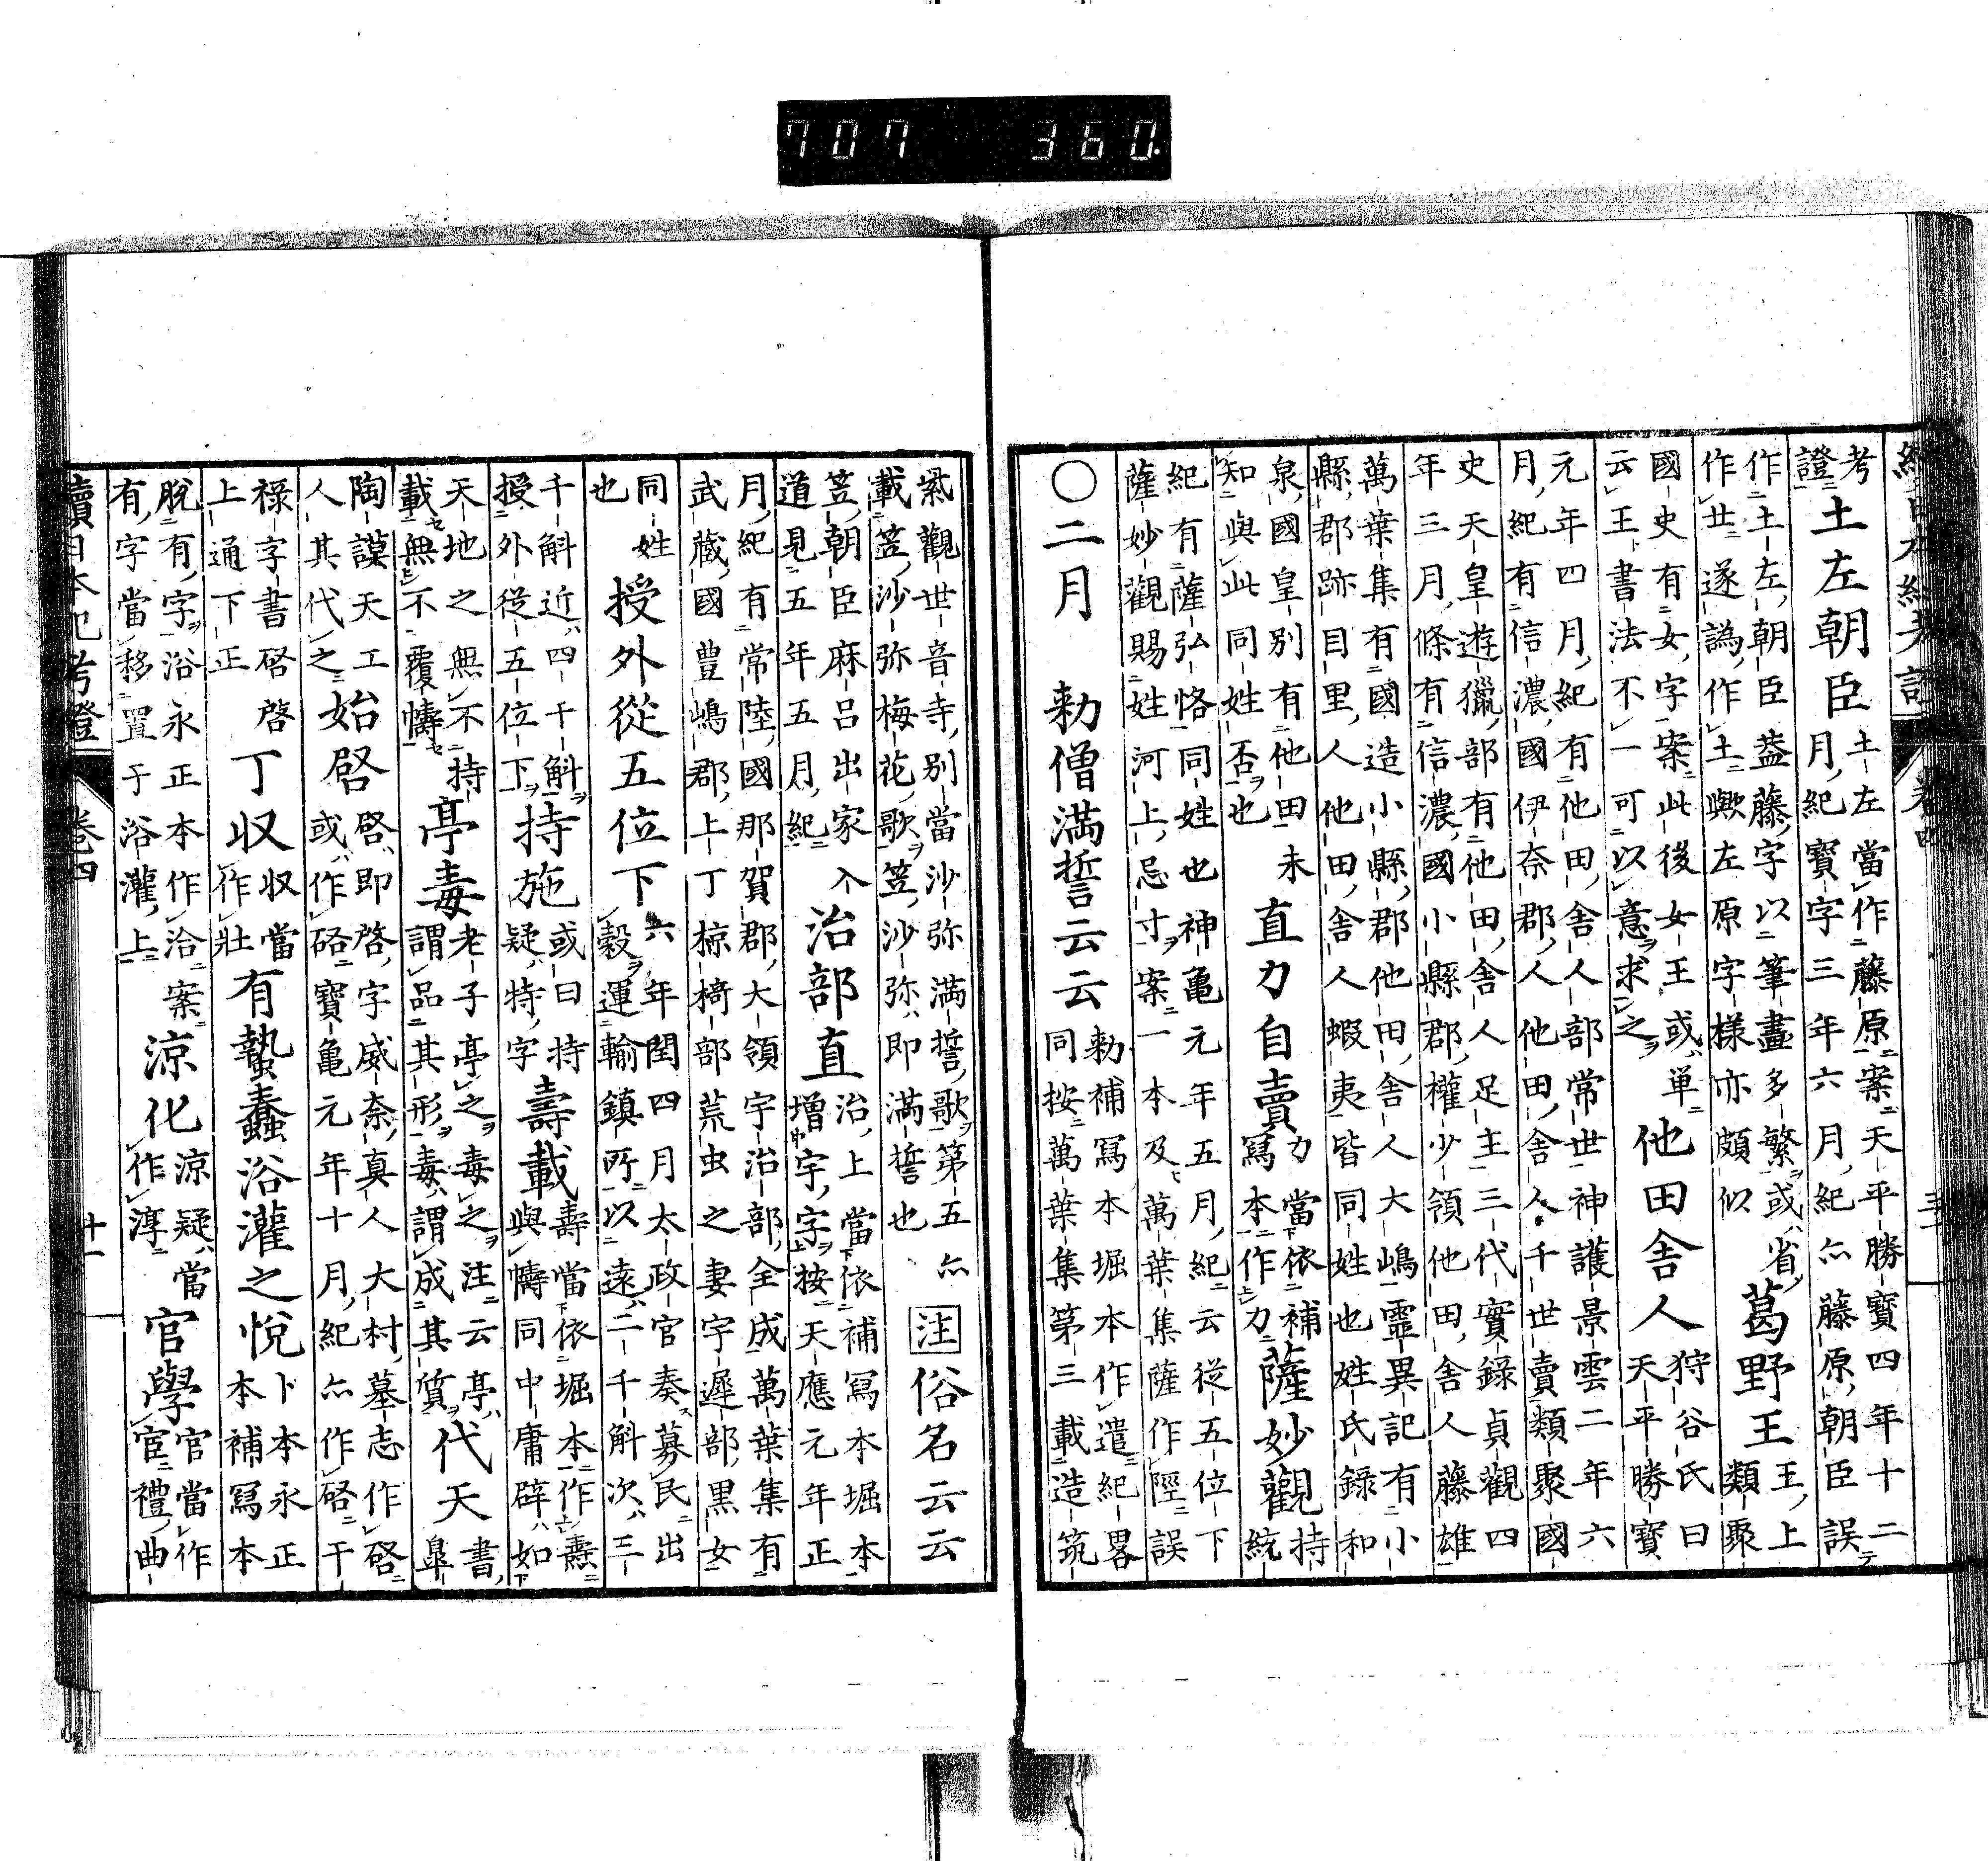 707 360
續日本紀考證 卷四
考
證 土左朝臣 土左當作藤原案天平勝寶四年十二
月紀寶字三年六月紀亦藤原朝臣誤
作土左朝臣蓋藤字以筆畫多繁或省
作廿遂譌作土歟左原字樣亦頗似 葛野王 王上類聚
國史有女字案此後女王或單
云王書法不一可以意求之 他田舍人 狩谷氏曰天平勝寶
元年四月紀有他田舍人部常世神護景雲二年六
月紀有信濃國伊奈郡人他田舍人千世賣類聚國
史天皇遊獵部有他田舍人足主三代實錄貞觀四
年三月條有信濃國小縣郡權少領他田舍人藤雄
萬葉集有國造小縣郡他田舍人大嶋靈異記有小
縣郡跡目里人他田舍人蝦夷皆同姓也姓氏錄和
泉國皇別有他田未
知與此同姓否也 直力自賣 力當依補
寫本作刀 薩妙觀 持統
紀有薩弘恪同姓也神亀元年五月紀云從五位下
薩妙觀賜姓河上忌寸案一本及萬葉集薩作陘誤
○二月 勅僧滿誓云云 勅補寫本堀本作遣紀畧
同按萬葉集第三載造筑
紫觀世音寺別當沙弥滿誓歌第五亦
載笠沙弥梅花歌笠沙弥即滿誓也 注 俗名云云
笠朝臣麻呂出家入
道見五年五月紀 治部直 治上當依補寫本堀本
增中字字按天應元年正
月紀有常陸國那賀郡大領宇治部全成萬葉集有
武藏國豊嶋郡上丁椋椅部荒虫之妻宇遲部黒女
同姓
也 授外從五位下 六年閏四月太政官奏募民出
穀運輸鎮所以遠二千斛次三
千斛近四千斛
授外從五位下 持施 或曰持
疑特字 壽載 壽當依堀本作燾
與幬同中庸辟如
天地之無不持
載無不覆幬 亭毒 老子亭之毒之注云亭
謂品其形毒謂成其質 代天 書皐
陶謨天工
人其代之 始啓 啓即啓字威奈真人大村墓志作啓
或作硌寶亀元年十月紀亦作硌干
禄字書硌啓
上通下正 丁収 収當
作壯 有蟄蠢浴灌之悅 卜本永正
本補寫本
脫有字浴永正本作洽案
有字當移置于浴灌上 涼化 涼疑當
作淳 官學 官當作
宦禮曲
續日本紀考證 卷四 廿一